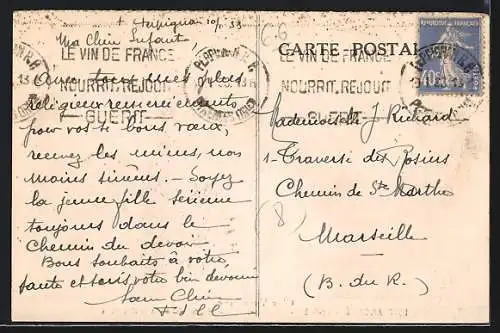 + Perpignan 10/1 33
Ma Chère Enfant,
LE VIN DE FRANCE
NOURRIT, REJOUIT
GUERIT
Avec tous mes plus
religieux remerciements
pour vos si bons vœux,
recevez les miens, non
moins sincères — Soyez
la jeune fille sérieuse
toujours dans le
Chemin du devoir
Bons souhaits à votre
tante et suis votre bien devouée
CARTE POSTALE
LE VIN DE FRANCE
NOURRIT, REJOUIT
GUERIT
REPUBLIQUE FRANÇAISE
40c
Mademoiselle J. Richard
1 - Traversé des Rosiers
Chemin de Ste Marthe
(8)
Marseille
(B. du R.)